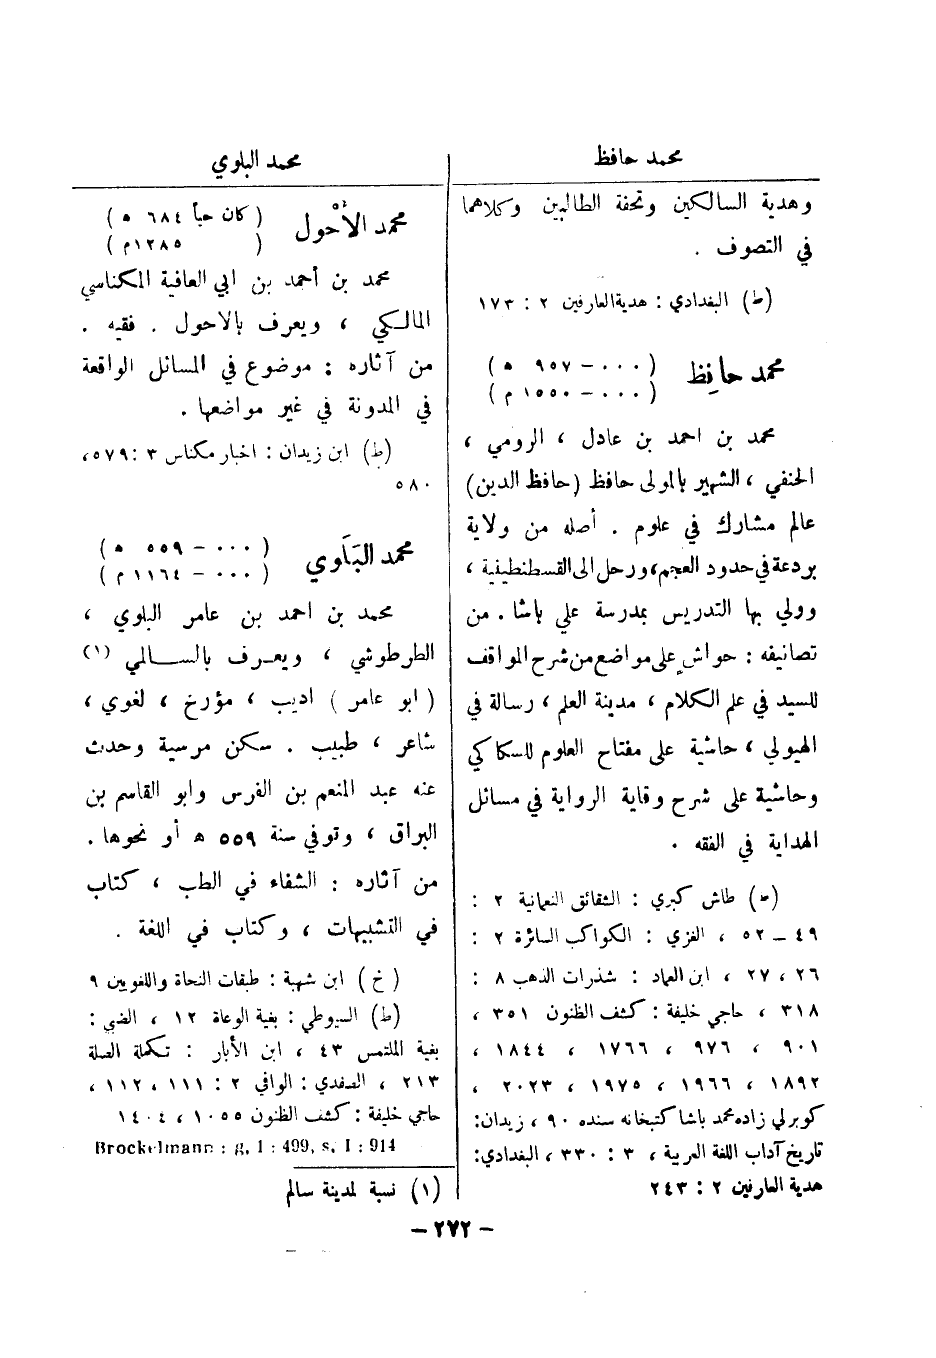 محمد حافظ
وهدية السالكين وتحفة الطالبين وكلاهما
في التصوف .
(ط) البغدادي : هدية العارفين ٢ : ١٧٣
محمد حافِظ (٠٠٠ – ٩٥٧ ه)
(٠٠٠ – ١٥٥٠ م)
محمد بن احمد بن عادل ، الرومي ،
الحنفي ، الشهير بالمولى حافظ (حافظ الدين)
عالم مشارك في علوم . أصله من ولاية
بردعة في حدود العجم، ورحل الى القسطنطينية ،
وولي بها التدريس بمدرسة علي باشا . من
تصانيفه : حواشٍ على مواضع من شرح المواقف
للسيد في علم الكلام ، مدينة العلم ، رسالة في
الهيولي ، حاشية على مفتاح العلوم للسكاكي
وحاشية على شرح وقاية الرواية في مسائل
الهداية في الفقه .
(ط) طاش كبري : الشقائق النعمانية ٢ :
٤٩ – ٥٢ ، الغزي : الكواكب السائرة ٢ :
٢٦ ، ٢٧ ، ابن العماد : شذرات الذهب ٨ :
٣١٨ ، حاجي خليفة : كشف الظنون ٣٥١ ،
٩٠١ ، ٩٧٦ ، ١٧٦٦ ، ١٨٤٤ ،
١٨٩٢ ، ١٩٦٦ ، ١٩٧٥ ، ٢٠٢٣ ،
كوبرلي زاده محمد باشا كتبخانه سنده ٩٠ ، زيدان:
تاريخ آداب اللغة العربية ، ٣ : ٣٣٠ ، البغدادي:
هدية العارفين ٢ : ٢٤٣
محمد البلوي
محمد الأحْول (كان حياً ٦٨٤ ه)
( ١٢٨٥م)
محمد بن أحمد بن ابي العافية المكناسي
المالكي ، ويعرف بالاحول . فقيه .
من آثاره : موضوع في المسائل الواقعة
في المدونة في غير مواضعها .
(ط) ابن زيدان : اخبار مكناس ٣ : ٥٧٩،
٥٨٠
محمد البَلَوي (٠٠٠ – ٥٥٩ ه)
(٠٠٠ – ١١٦٤ م)
محمد بن احمد بن عامر البلوي ،
الطرطوشي ، ويعرف بالسالمي (١)
( ابو عامر ) اديب ، مؤرخ ، لغوي ،
شاعر ، طبيب . سكن مرسية وحدث
عنه عبد المنعم بن الفرس وابو القاسم بن
البراق ، وتوفي سنة ٥٥٩ ه أو نحوها .
من آثاره : الشفاء في الطب ، كتاب
في التشبيهات ، وكتاب في اللغة .
( خ ) ابن شهبة : طبقات النحاة واللغويين ٩
(ط) السيوطي : بغية الوعاة ١٢ ، الضبي :
بغية الملتمس ٤٣ ، ابن الأبار : تكملة الصلة
٢١٣ ، الصفدي : الوافي ٢ : ١١١ ، ١١٢ ،
حاجي خليفة : كشف الظنون ١٠٥٥ ، ١٤٠٤
Brockelmann : g, I : 499, s, I : 914
(١) نسبة لمدينة سالم
– ٢٧٢ –